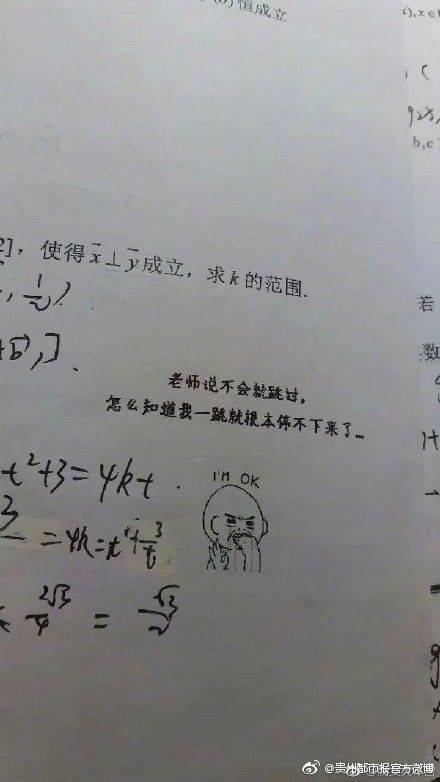 恒成立
],使得x̄⊥ȳ成立,求k的范围.
, 1/2)
b),].
若
数
b,c
老师说不会就跳过,
怎么知道我一跳就根本停不下来了...
t²+3=4kt.
I'M OK
3
=4k=t+3/t
2√3/4 = √3/2
@贵州都市报官方微博